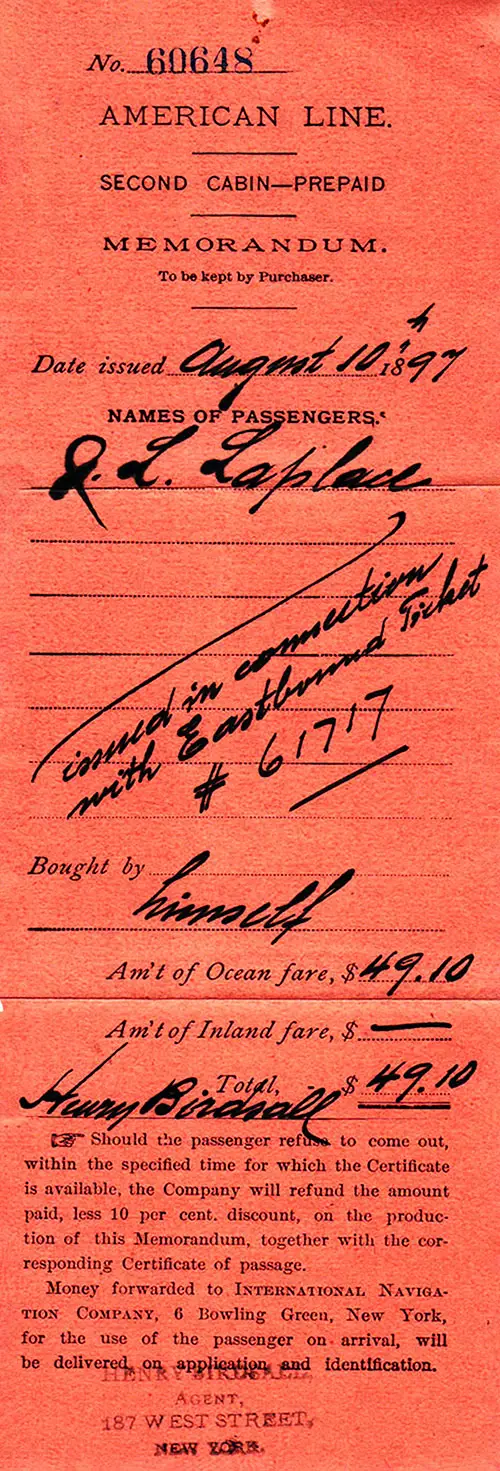 No. 60648
AMERICAN LINE.
SECOND CABIN—PREPAID
MEMORANDUM.
To be kept by Purchaser.
Date issued August 10th 1897
NAMES OF PASSENGERS.
J. L. Laplace
issued in connection
with Eastbound Ticket
# 61717
Bought by
himself
Am't of Ocean fare, $ 49.10
Am't of Inland fare, $ —
Total, $ 49.10
Henry Birdsall
☞ Should the passenger refuse to come out,
within the specified time for which the Certificate
is available, the Company will refund the amount
paid, less 10 per cent. discount, on the produc-
tion of this Memorandum, together with the cor-
responding Certificate of passage.
Money forwarded to INTERNATIONAL NAVIGA-
TION COMPANY, 6 Bowling Green, New York,
for the use of the passenger on arrival, will
be delivered on application and identification.
HENRY BIRDSALL,
AGENT,
187 WEST STREET,
NEW YORK.